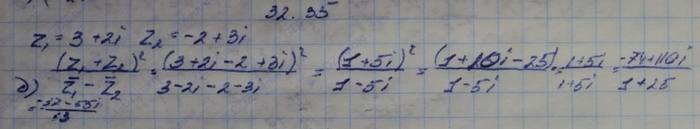 32.35
z₁ = 3 + 2i  z₂ = -2 + 3i
д) (z₁ + z₂)² / (z̄₁ - z̄₂) = (3 + 2i - 2 + 3i)² / (3 - 2i - 2 - 3i) = (1 + 5i)² / (1 - 5i) = (1 + 10i - 25) / (1 - 5i) · (1 + 5i) / (1 + 5i) = (-74 + 110i) / (1 + 25)
= (-37 - 55i) / 13